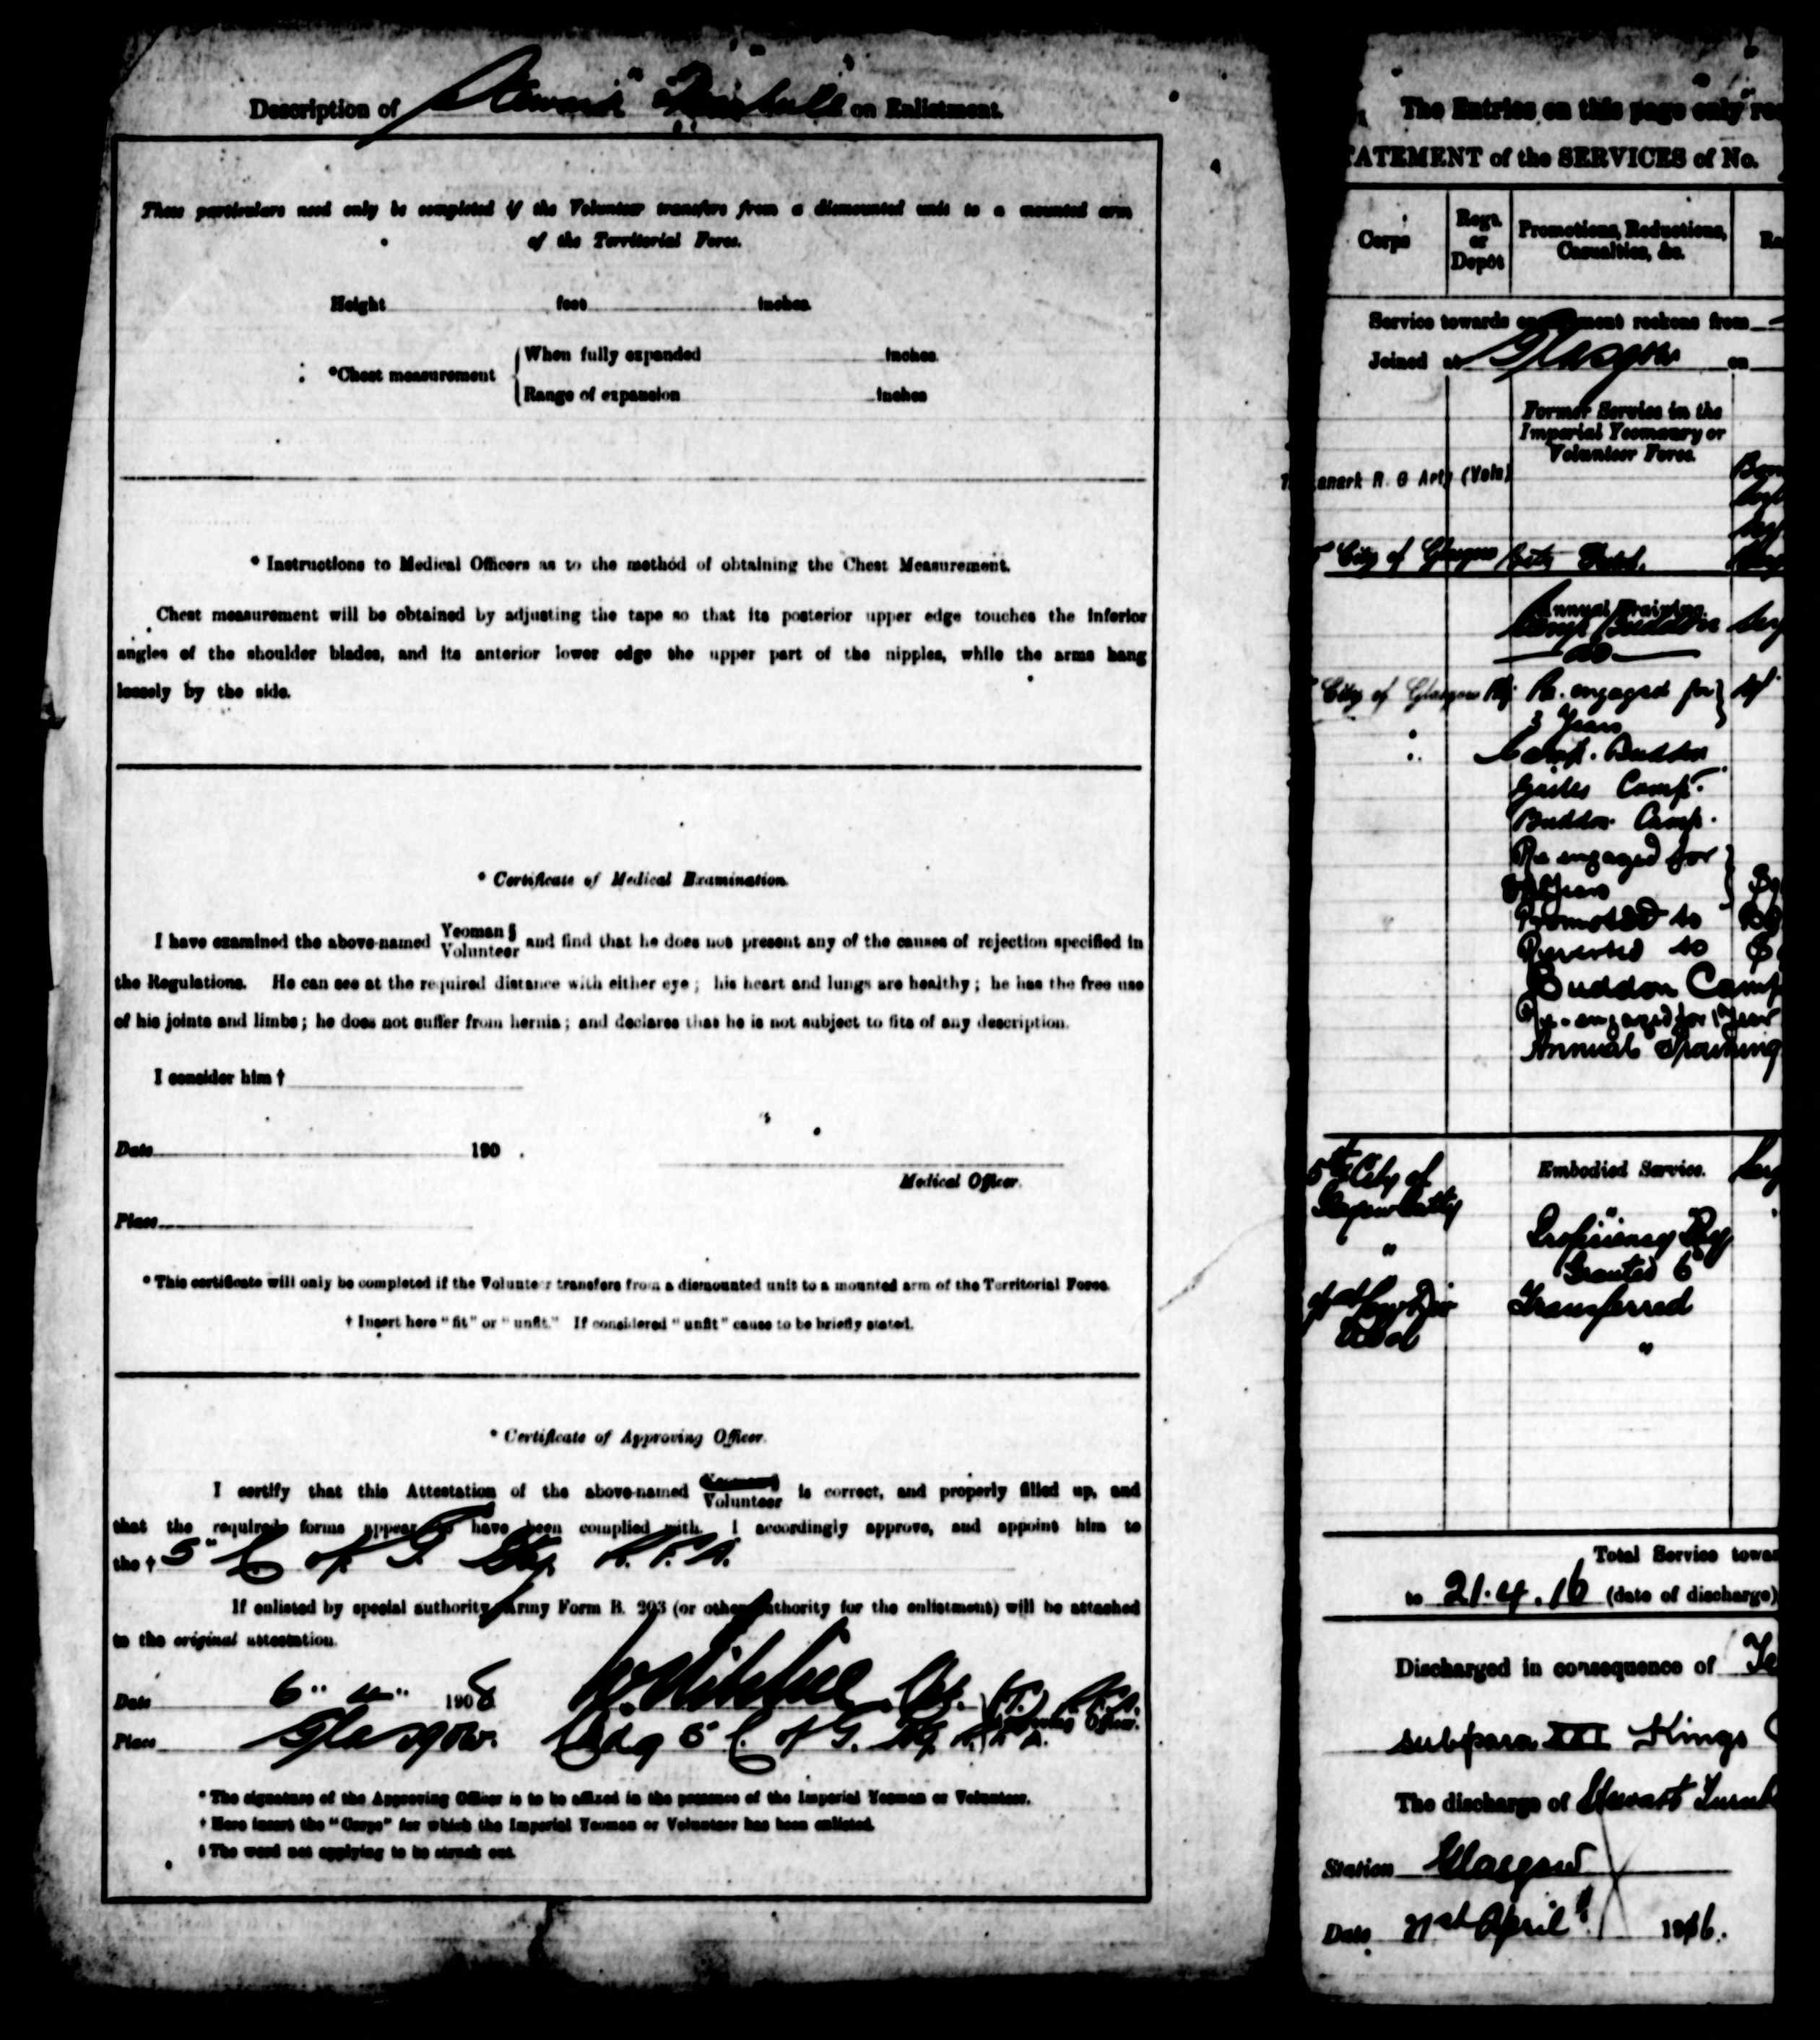 Description of Stewart Turnbull on Enlistment.
These particulars need only be completed if the Volunteer transfers from a dismounted unit to a mounted arm
of the Territorial Force.
Height feet inches.
When fully expanded inches.
*Chest measurement
Range of expansion inches
* Instructions to Medical Officers as to the method of obtaining the Chest Measurement.
Chest measurement will be obtained by adjusting the tape so that its posterior upper edge touches the inferior
angles of the shoulder blades, and its anterior lower edge the upper part of the nipples, while the arms hang
loosely by the side.
* Certificate of Medical Examination.
I have examined the above-named Yeoman § Volunteer and find that he does not present any of the causes of rejection specified in
the Regulations. He can see at the required distance with either eye; his heart and lungs are healthy; he has the free use
of his joints and limbs; he does not suffer from hernia; and declares that he is not subject to fits of any description.
I consider him †
Date 190 .
Medical Officer.
Place
* This certificate will only be completed if the Volunteer transfers from a dismounted unit to a mounted arm of the Territorial Force.
† Insert here "fit" or "unfit." If considered "unfit" cause to be briefly stated.
* Certificate of Approving Officer.
I certify that this Attestation of the above-named Volunteer is correct, and properly filled up, and
that the required forms appear to have been complied with. I accordingly approve, and appoint him to
the † 5" C of G. R.F.A.
If enlisted by special authority Army Form B. 203 (or other authority for the enlistment) will be attached
to the original attestation.
Date 6" 1908
Approving Officer.
Place Glasgow. Cmdg 5 C. of G.
* The signature of the Approving Officer is to be affixed in the presence of the Imperial Yeoman or Volunteer.
† Here insert the "Corps" for which the Imperial Yeoman or Volunteer has been enlisted.
§ The word not applying to be struck out.
The Entries on this page only re
ATEMENT of the SERVICES of No.
Corps
Regt. or Depôt
Promotions, Reductions, Casualties, &c.
Ra
Service towards engagement reckons from
Joined at Glasgow on
Former Service in the
Imperial Yeomanry or
Volunteer Force.
anark R. G Arty (Vols)
City of Glasgow
Annual Training
Camp Buddon
do
City of Glasgow Re. engaged for
3 Years
Camp. Buddon
Gailes Camp.
Buddon Camp.
Re engaged for
Years
Promoted to
Reverted to
Buddon Camp
Re-engaged for 1 Year
Annual Training
5th City of
Glasgow Batty
Embodied Service.
"
Proficiency
Granted 6
Transferred
"
Total Service towar
to 21.4.16 (date of discharge)
Discharged in consequence of Te
subpara XXI Kings
The discharge of Stewart Turnb
Station Glasgow
Date 21st April 1916.